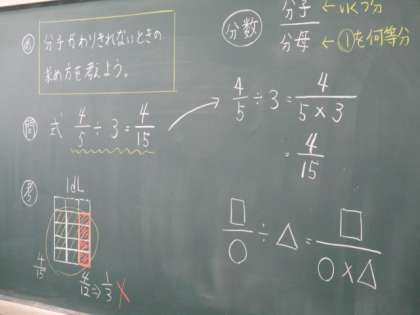 め 分子がわりきれないときの
求め方を考えよう。
問 式 4/5 ÷ 3 = 4/15
考 1dL
4/15
4/12 ⇒ 1/3 ×
分数 分子 ← いくつ分
分母 ← ①を何等分
4/5 ÷ 3 = 4/(5×3)
= 4/15
□/○ ÷ △ = □/(○×△)